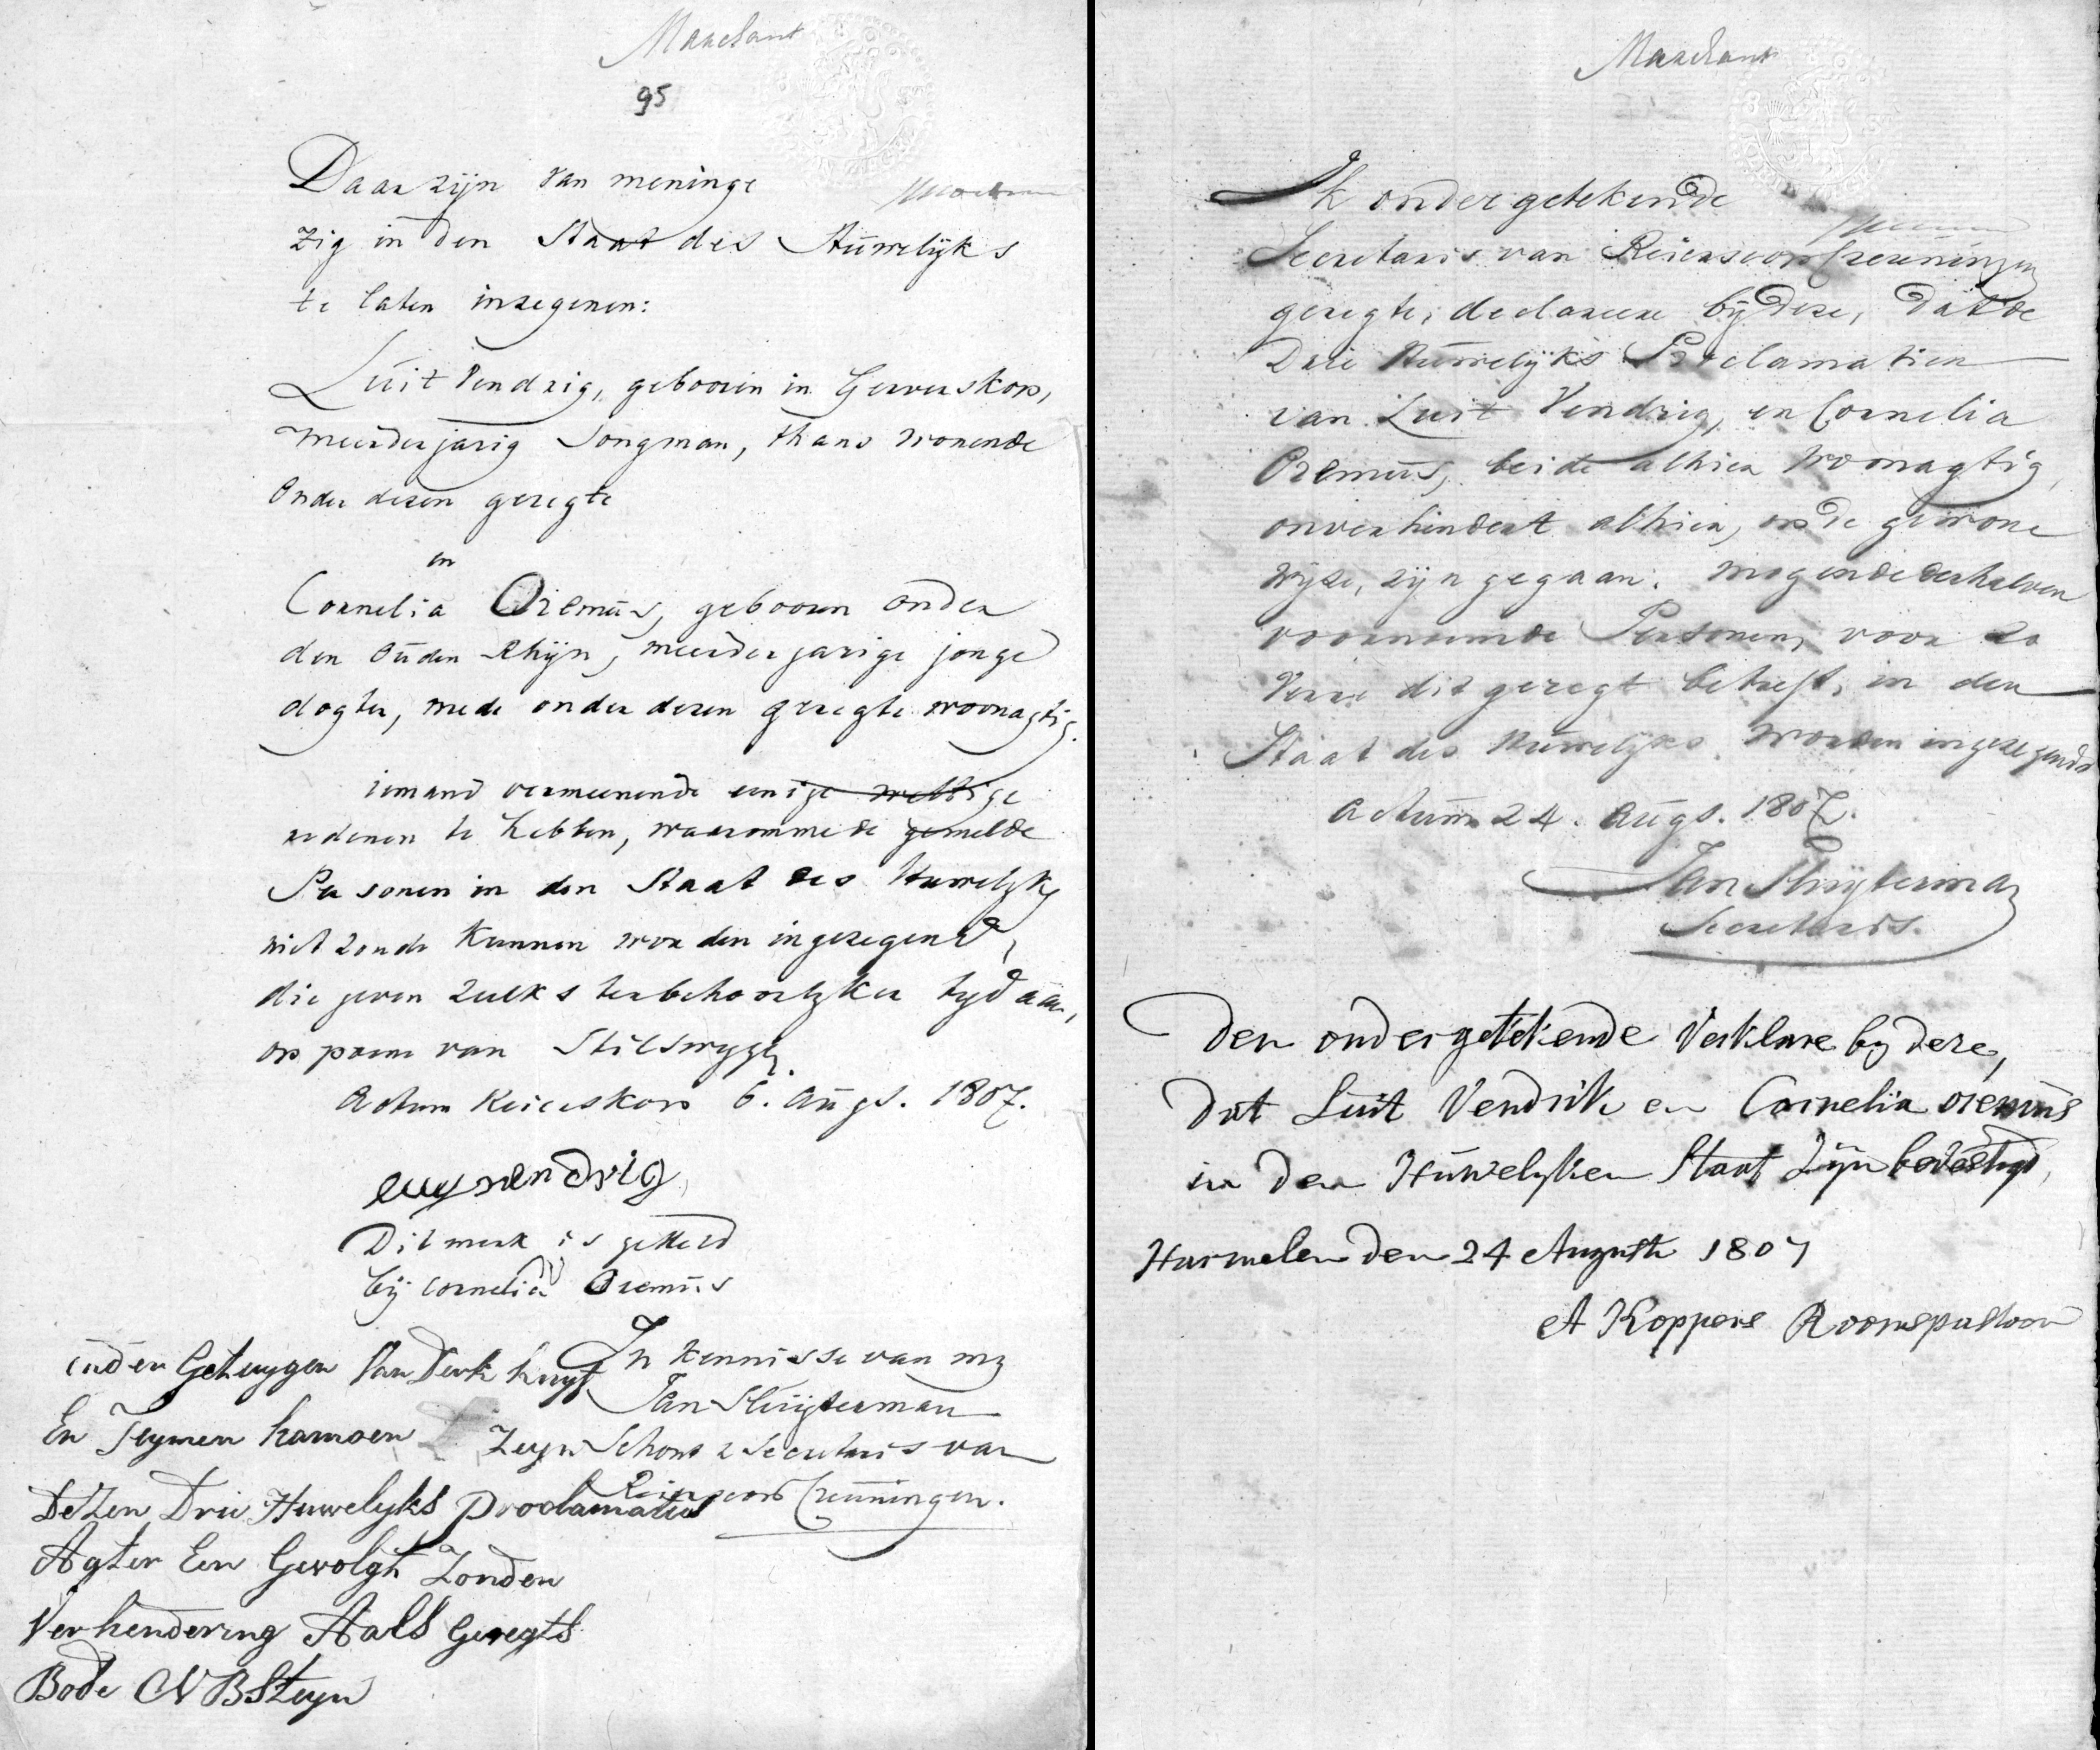 Marchant
95
Daar zijn van meninge
zig in den Staat des Huwelijks
te laten inzegenen:
Luit Vendrig, gebooren in Gerverskop,
meerderjarig Jongman, thans wonende
onder dezen geregte
en
Cornelia Oremus, gebooren onder
den Ouden Rhijn, meerderjarige jonge
dogter, mede onder dezen geregte woonagtig.
iemand vermeenende eenige wettige
redenen te hebben, waarommede gemelde
Personen in den Staat des Huwelyks
niet zoude kunnen worden ingezegend,
die geven zulks ter behoorlyker tyd aan,
op poene van Stilswyge.
Actum Reierskop 6. Augs. 1807.
luyt vendrig
Dit merk is gesteld
bij Cornelia Oremus
In kennisse van my
Jan Sluijterman
Schout & Secretaris van
Reierscop Creuningen.
inden Getuygen Van Derk kuyf
En Teymen hamoen Zeyn
Detzen Drie Huwelyks Proclamaties
Agter Een Gevolgt Zonder
Verhendering Aals Geregts
Bode CV BSteyn
Marchant
Ik ondergetekende
Secretaris van Reierscop Creuningen
geregte, declareere bij deze, dat de
Drie Huwelijks Proclamatien
van Luit Vendrig, en Cornelia
Oremus, beide alhier Woonagtig,
onverhindert alhier, op de gewone
wijze, zijn gegaan: mogende derhalven
voornoemde Personen, voor zo
Verre dit geregt betreft, in den
Staat des Huwelijks worden ingezegend
Actum 24. Augs. 1807.
Jan Sluijterman
Secretaris.
Den ondergetekende Verklare by deze,
dat Luit Vendrik en Cornelia oremus
in den Huwelyken Staat Zijn bevestigd,
Harmelen den 24 Augusti 1807
A Koppers Roomspastoor